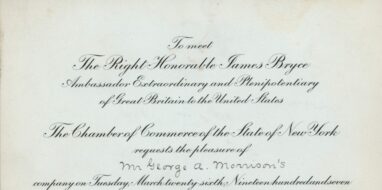 To meet
The Right Honorable James Bryce
Ambassador Extraordinary and Plenipotentiary
of Great Britain to the United States
The Chamber of Commerce of the State of New York
requests the pleasure of
Mr George A. Morrison's
company on Tuesday, March twenty-sixth, Nineteen hundred and seven